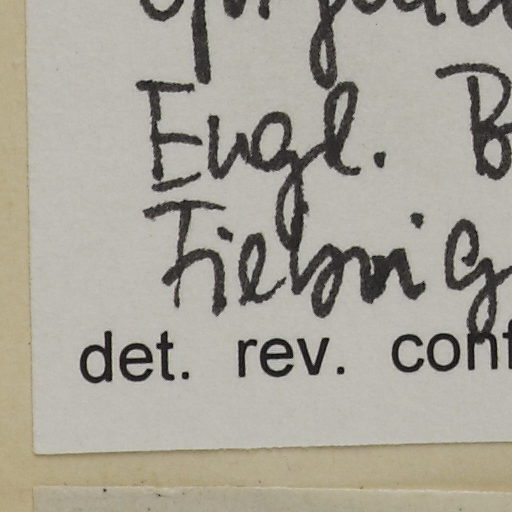 Engl. B
Fiebrig
det. rev. conf